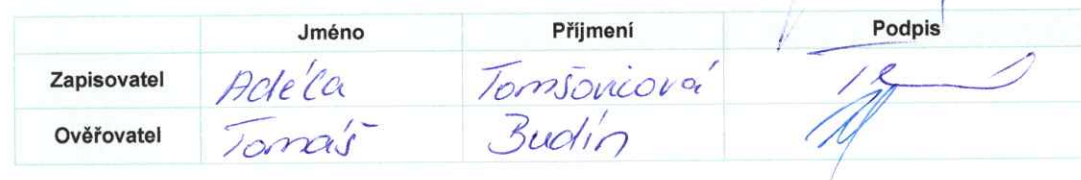 Jméno Příjmení Podpis
Zapisovatel Adéla Tomšovicová
Ověřovatel Tomáš Budín